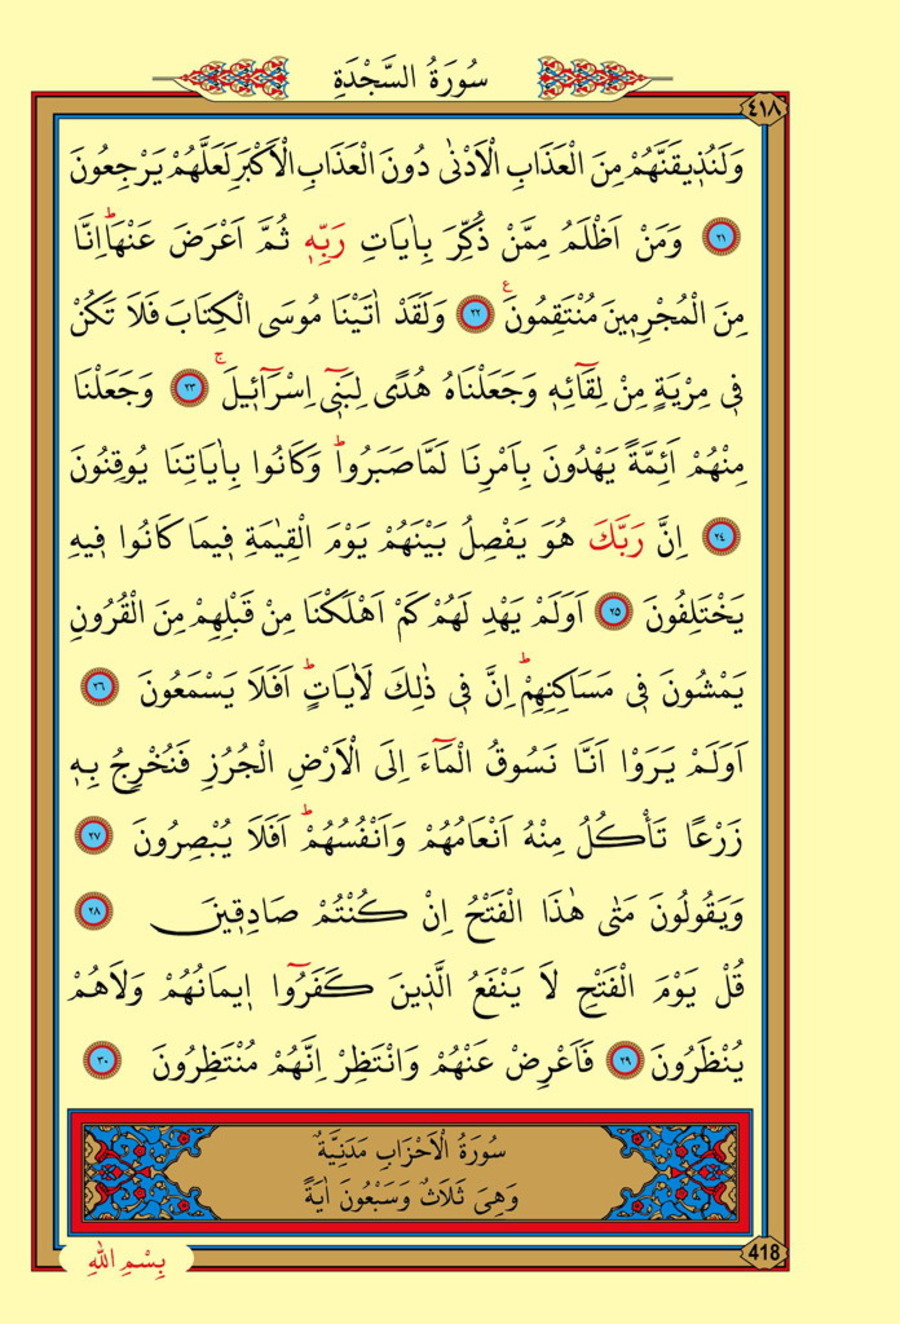 سُورَةُ السَّجْدَةِ
٤١٨
وَلَنُذ۪يقَنَّهُمْ مِنَ الْعَذَابِ الْاَدْنٰى دُونَ الْعَذَابِ الْاَكْبَرِ لَعَلَّهُمْ يَرْجِعُونَ
٢١ وَمَنْ اَظْلَمُ مِمَّنْ ذُكِّرَ بِاٰيَاتِ رَبِّه۪ ثُمَّ اَعْرَضَ عَنْهَاۜ اِنَّا
مِنَ الْمُجْرِم۪ينَ مُنْتَقِمُونَ۟ ٢٢ وَلَقَدْ اٰتَيْنَا مُوسَى الْكِتَابَ فَلَا تَكُنْ
ف۪ي مِرْيَةٍ مِنْ لِقَٓائِه۪ وَجَعَلْنَاهُ هُدًى لِبَن۪ٓي اِسْرَٓائ۪يلَۚ ٢٣ وَجَعَلْنَا
مِنْهُمْ اَئِمَّةً يَهْدُونَ بِاَمْرِنَا لَمَّا صَبَرُواۜ وَكَانُوا بِاٰيَاتِنَا يُوقِنُونَ
٢٤ اِنَّ رَبَّكَ هُوَ يَفْصِلُ بَيْنَهُمْ يَوْمَ الْقِيٰمَةِ ف۪يمَا كَانُوا ف۪يهِ
يَخْتَلِفُونَ ٢٥ اَوَلَمْ يَهْدِ لَهُمْ كَمْ اَهْلَكْنَا مِنْ قَبْلِهِمْ مِنَ الْقُرُونِ
يَمْشُونَ ف۪ي مَسَاكِنِهِمْۜ اِنَّ ف۪ي ذٰلِكَ لَاٰيَاتٍۜ اَفَلَا يَسْمَعُونَ ٢٦
اَوَلَمْ يَرَوْا اَنَّا نَسُوقُ الْمَٓاءَ اِلَى الْاَرْضِ الْجُرُزِ فَنُخْرِجُ بِه۪
زَرْعًا تَأْكُلُ مِنْهُ اَنْعَامُهُمْ وَاَنْفُسُهُمْۜ اَفَلَا يُبْصِرُونَ ٢٧
وَيَقُولُونَ مَتٰى هٰذَا الْفَتْحُ اِنْ كُنْتُمْ صَادِق۪ينَ ٢٨
قُلْ يَوْمَ الْفَتْحِ لَا يَنْفَعُ الَّذ۪ينَ كَفَرُٓوا ا۪يمَانُهُمْ وَلَا هُمْ
يُنْظَرُونَ ٢٩ فَاَعْرِضْ عَنْهُمْ وَانْتَظِرْ اِنَّهُمْ مُنْتَظِرُونَ ٣٠
سُورَةُ الْاَحْزَابِ مَدَنِيَّةٌ
وَهِيَ ثَلَاثٌ وَسَبْعُونَ اٰيَةً
بِسْمِ اللّٰهِ
418